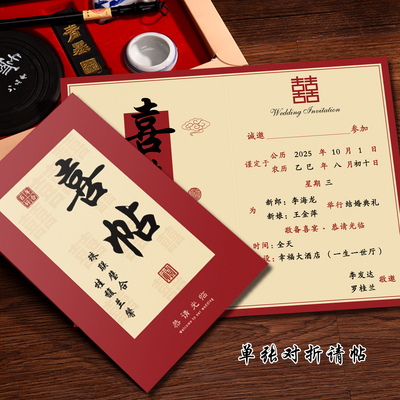 喜
囍
Wedding Invitation
诚邀 参加
谨定于 公历 2025 年 10 月 1 日
农历 乙巳 年 八 月 初十 日
星期 三
为 新郎：李海龙 举行 结婚典礼
新娘：王金萍
敬备喜宴·恭请光临
时间：全天
设：幸福大酒店（一生一世厅）
李发达
罗桂兰
敬邀
喜帖
珠联璧合
桂馥兰馨
恭请光临
Welcome to our wedding
单张对折请帖